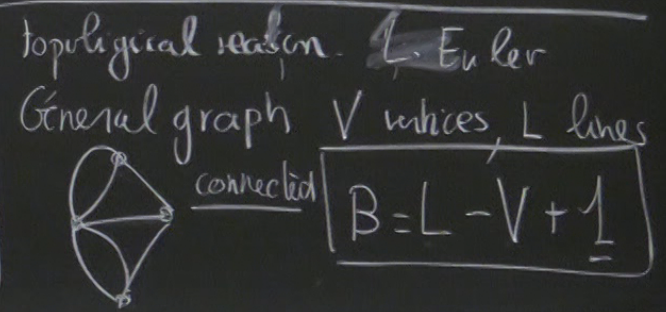 topoligical reason. L. Euler
General graph V vertices, L lines
connected B = L - V + 1